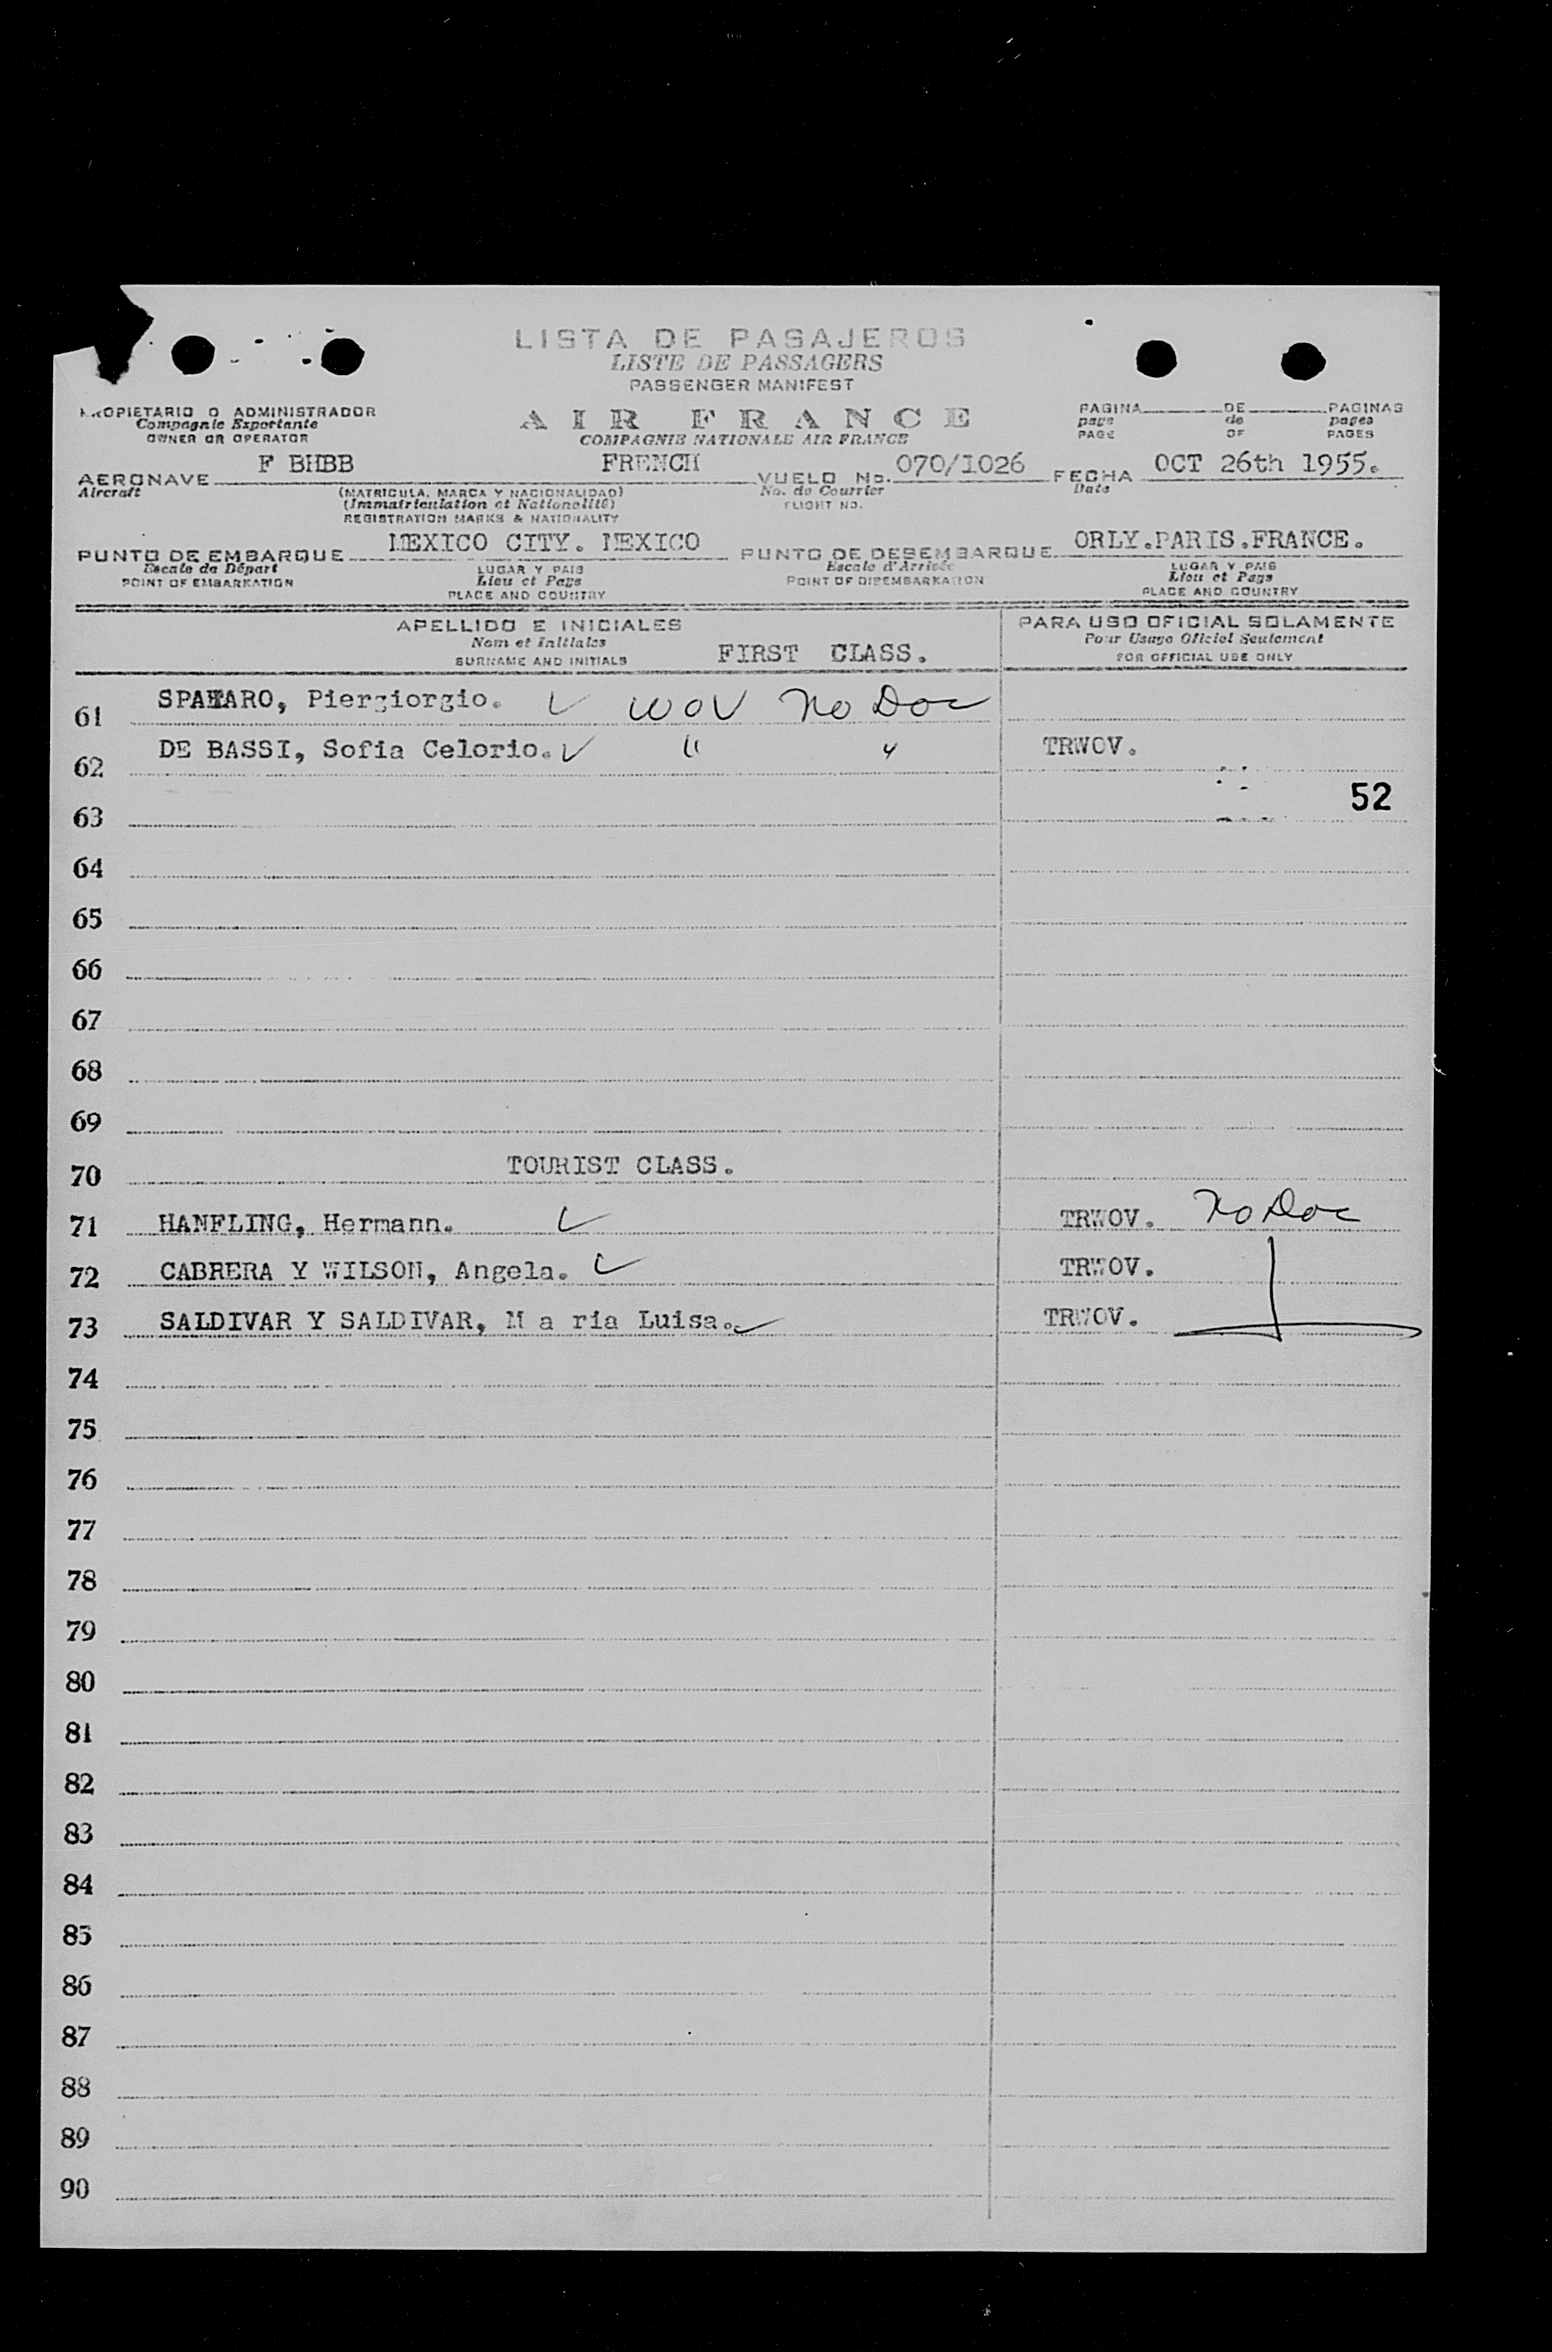 LISTA DE PASAJEROS
LISTE DE PASSAGERS
PASSENGER MANIFEST
PROPIETARIO O ADMINISTRADOR
Compagnie Exportante
OWNER OR OPERATOR
AIR FRANCE
COMPAGNIE NATIONALE AIR FRANCE
PAGINA DE PAGINAS
page de pages
PAGE OF PAGES
AERONAVE F BHBB FRENCH VUELO No. 070/1026 FECHA OCT 26th 1955.
Aircraft (MATRICULA, MARCA Y NACIONALIDAD) No. de Courrier Date
(Immatriculation et Nationalité) FLIGHT NO.
REGISTRATION MARKS & NATIONALITY
PUNTO DE EMBARQUE MEXICO CITY. MEXICO PUNTO DE DESEMBARQUE ORLY.PARIS.FRANCE.
Escale de Départ LUGAR Y PAIS Escale d'Arrivée LUGAR Y PAIS
POINT OF EMBARKATION Lieu et Pays POINT OF DISEMBARKATION Lieu et Pays
PLACE AND COUNTRY PLACE AND COUNTRY
APELLIDO E INICIALES PARA USO OFICIAL SOLAMENTE
Nom et Initiales Pour Usage Officiel Seulement
SURNAME AND INITIALS FIRST CLASS. FOR OFFICIAL USE ONLY
61 SPATARO, Piergiorgio. WOV No Doc
62 DE BASSI, Sofia Celorio. " " TRWOV.
63 52
64
65
66
67
68
69
70 TOURIST CLASS.
71 HANFLING, Hermann. TRWOV. No Doc
72 CABRERA Y WILSON, Angela. TRWOV.
73 SALDIVAR Y SALDIVAR, M a ria Luisa. TRWOV.
74
75
76
77
78
79
80
81
82
83
84
85
86
87
88
89
90